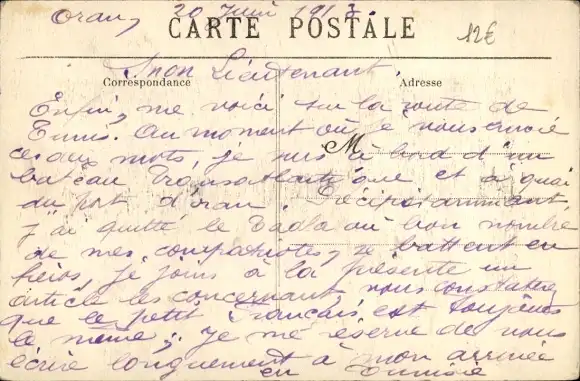 Oran, 20 Juin 1913.
CARTE POSTALE
12€
Mon Lieutenant,
Correspondance
Adresse
Enfin, me voici sur la route de
Tunis. Au moment où je vous
ces mots, je suis à bord d'un
M
bateau Transatlantique et à quai
du port d'Oran.
j'ai quitté le Tadla où bon nombre
de mes compatriotes, se battent en
héros, je joins à la présente un
article les concernant, vous
que le petit Français est toujours
le même; je me réserve de vous
écrire longuement à mon arrivée
en Tunisie